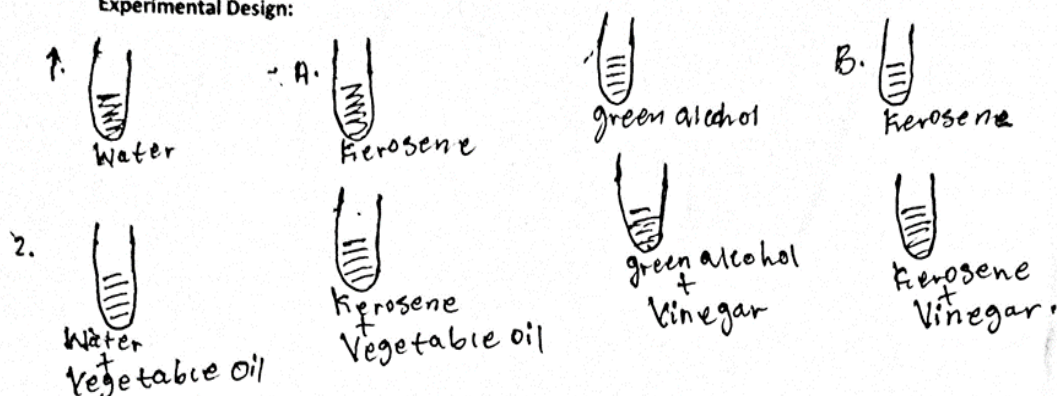 Experimental Design:
1. A. B.
Water Kerosene green alcohol Kerosene
2.
Water + Vegetable oil
Kerosene + Vegetable oil
green alcohol + Vinegar
Kerosene + Vinegar.